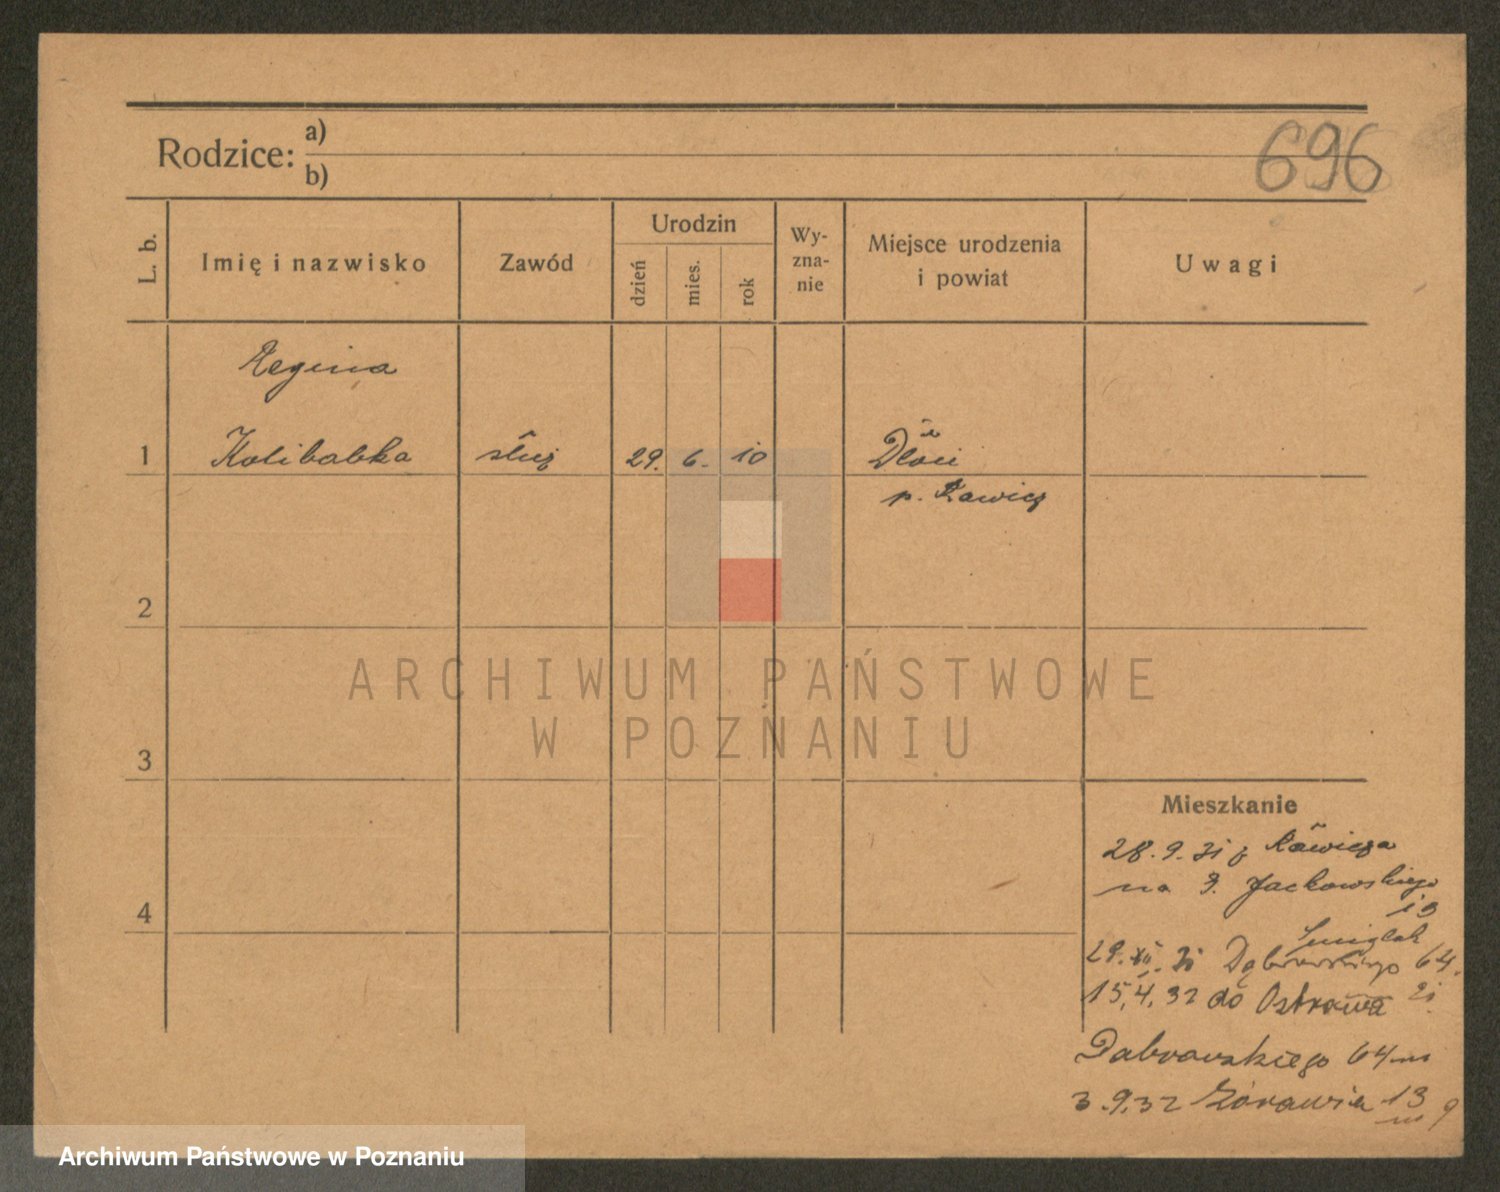 Rodzice: a)
b)
696
L. b.
Imię i nazwisko
Zawód
Urodzin
dzień
mies.
rok
Wy-
zna-
nie
Miejsce urodzenia
i powiat
Uwagi
Regina
1 Kolibabka służ 29. 6. 10 Dłoń
p. Rawicz
2
3
4
ARCHIWUM PAŃSTWOWE
W POZNANIU
Mieszkanie
28.9.31 z Rawicza
na Jackowskiego
13
29.XII.31 Dąbrowskiego 64.
15.4.32 do Ostrowa
Dabrowskiego 64 m
3.9.32 Żórawia 13
m 9
Archiwum Państwowe w Poznaniu